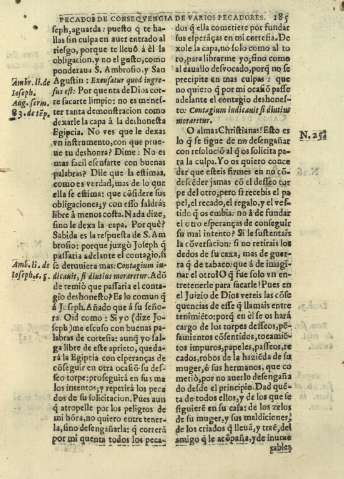 PECADOS DE CONSEQVENCIA DE VARIOS PECADORES. 285
seph, aguarda: puesto q̃ te ha-
llas sin culpa en auer entrado al
riesgo, porque te lleuò à èl la
obligacion, y no el gusto, como
ponderaua S. Ambrosio, y San
Agustin:
Por quenta de Dios cor-
re sacarte limpio: no es menes-
ter tanta demostracion como
dexarle la capa à la deshonesta
Egipcia. No ves que le dexas
vn instrumento, con que prue-
ue tu deshonra? Dime: No es
mas facil escusarte con buenas
palabras? Dile que la estimas,
como es verdad, mas de lo que
ella se estima: que cõsidere sus
obligaciones; y con esso saldràs
libre à menos costa. Nada dize,
sino le dexa la capa. Porquè?
Sabida es la respuesta de S. Am-
brosio: porque juzgò Joseph q̃
passaria adelante el contagio, si
se detuuiera mas: Contagium iu-
dicauit, si diutius moraretur. Adõ
de temiò que passaria el conta-
gio deshonesto? Es lo comun q̃
à Joseph. Añado que à su seño-
ra. Oid como: Si yo (dize Jo-
seph) me escuso con buenas pa-
labras de cortesia: aunq̃ yo sal-
ga libre de este aprieto, queda-
rà la Egiptia con esperanças de
cõseguir en otra ocasiõ su des-
seo torpe: proseguirà en sus ma
los intentos, y repetirà los peca
dos de su solicitacion. Pues aun
q̃ atropelle por los peligros de
mi hõra, no quiero entretener-
la, sino desengañarla: q̃ correrã
por mi quenta todos los peca-
dos q̃ ella cometiere por fundar
sus esperãças en mi cortesia. De
xole la capa, no solo como al to
ro, para librarme yo, sino como
al cauallo desvocado, porq̃ no se
precipite en mas culpas: que
no quiero q̃ por mi ocasiõ passe
adelante el contagio deshones-
to: Contagium indicauit si diutius
moraretur.
O almas Christianas! Esto es
lo q̃ se sigue de no desengañar
con resoluciõ al q̃ os solicita pa-
ra la culpa. Yo os quiero conce
der que esteis firmes en no cõ-
descẽder jamàs cõ el desseo tor
pe del otro; pero si recebis el pa
pel, el recado, el regalo, y el ves-
tido q̃ os embia: no à de fundar
el otro esperanças de conseguir
su mal intento? Si le sustentais
la cõversacion: si no retirais los
dedos de su caxa, mas de guar-
ra q̃ de tabaco: què à de imagi-
nar el otro? O q̃ fue solo vn en-
tretenerle para sacarle! Pues en
el Juizio de Dios vereis las cõse
quencias de esse q̃ llamais entre
tenimiẽto: porq̃ en èl se os harà
cargo de los torpes desseos, põ-
samientos cõsentidos, tocamiẽ-
tos impuros, papeles, passeos, re
cados, robos de la haziẽda de su
muger, ò sus hermanos, que co
metiò, por no auerle desengaña
do desde el principio. Dad quẽ-
ta de todos ellos, y de los que se
siguierẽ en su casa: de los zelos
de su muger, y sus maldiciones,
de los criados q̃ lleuò, y traxè, del
amigo q̃ le acõpaña, y de inume
rables
Ambr. li. de
Ioseph.
Aug. serm.
83. de tẽp.
Amb. li. de
Ioseph. c. 5.
N. 258